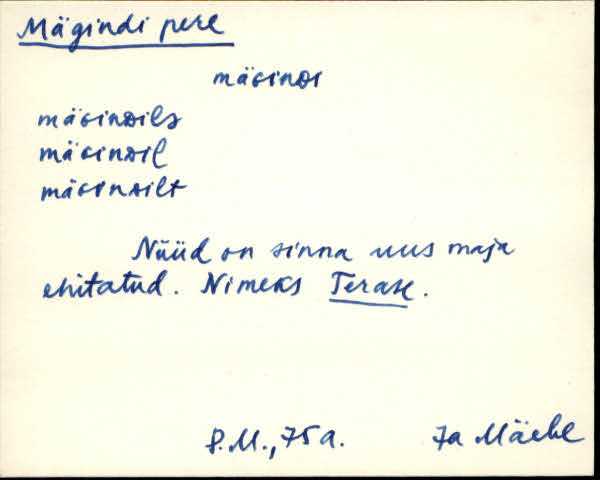 Mägindi pere
mäGinDi
mäGinDile
mäGinDil
mäGinDilt
Nüüd on sinna uus maja
ehitatud. Nimeks Terase.
P.M., 75 a. Ja Mäekl